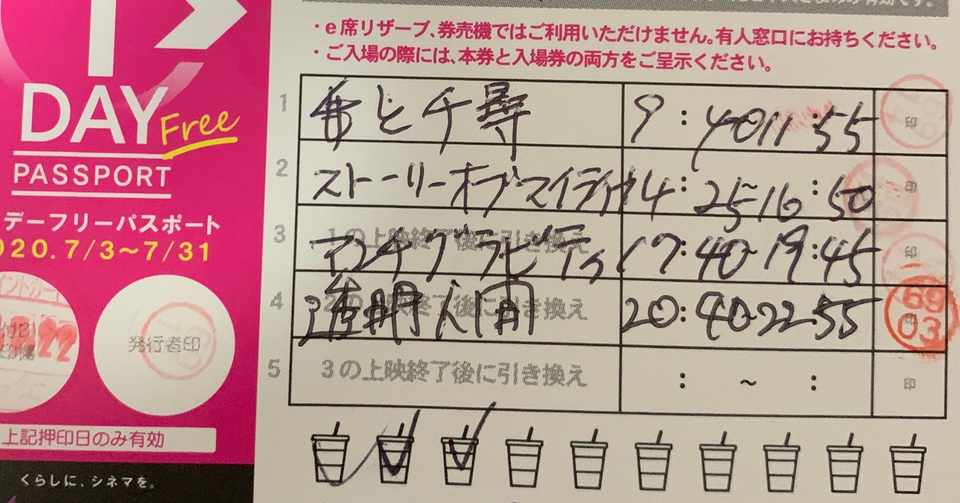 DAY
Free
PASSPORT
デーフリーパスポート
020.7/3〜7/31
発行者印
上記押印日のみ有効
くらしに、シネマを。
・e席リザーブ、券売機ではご利用いただけません。有人窓口にお持ちください。
・ご入場の際には、本券と入場券の両方をご呈示ください。
1 と千尋 9:40 11:55 印
2 ストーリーオブマイライフ 14:25~16:50 印
3 1の上映終了後に引き換え アンチグラビティ 17:40-19:45 印
4 2の上映終了後に引き換え 透明人間 20:40-22:55 印
5 3の上映終了後に引き換え : ~ : 印